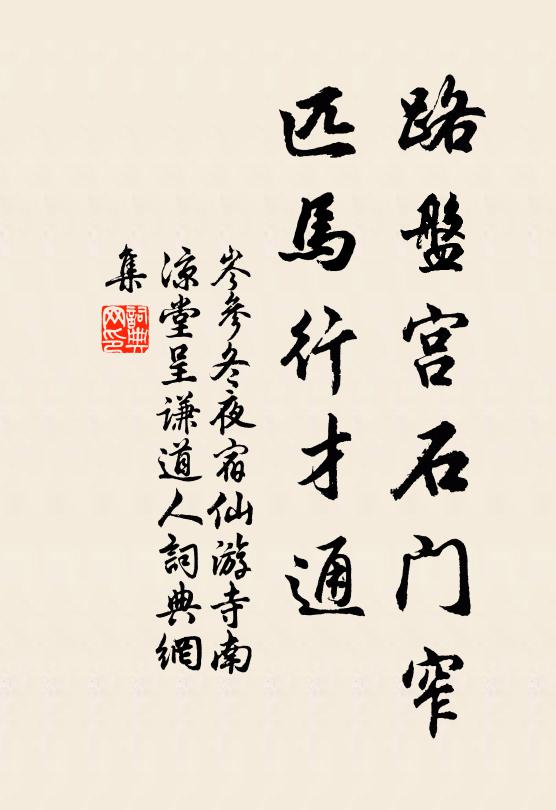 路盤宫石门窄
匹馬行才通
岑参冬夜宿仙游寺南
涼堂呈谦道人詞典網
集
詞典网印